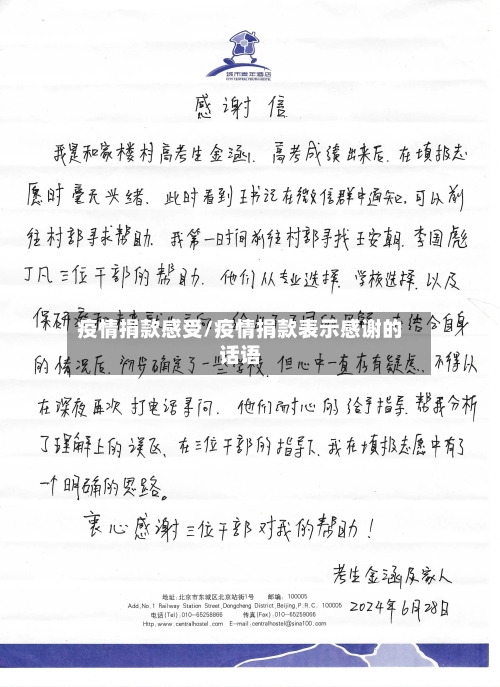 城市青年酒店
CENTRAL YOUTH HOSTEL
感谢信
我是和家楼村高考生金涵,高考成绩出来后,在填报志
愿时毫无头绪.此时看到王书记在微信群中通知,可以前
往村部寻求帮助.我第一时间前往村部寻找王安朝.李国彪
丁凡三位干部的帮助.他们从专业选择.学校选择.以及
保研
结合自身
疫情捐款感受/疫情捐款表示感谢的
话语
的情况后.初步确定了一些学校.但心中一直存有疑虑.不得以
在深夜再次打电话寻问.他们耐心的给予指导.帮我分析
了理解上的误区,在三位干部的指导下.我在填报志愿中有了
一个明确的思路。
衷心感谢三位干部对我的帮助!
考生金涵及家人
2024年6月28日
地址:北京市东城区北京站街1号 邮编:100005
Add.No.1 Railway Station Street,Dongcheng District,Beijing,P.R.C. 100005
电话(Tel).010-65258866 传真(Fax).010-65259066
Http.www.centralhostel.com E-mail.centralhostel@sina100.com